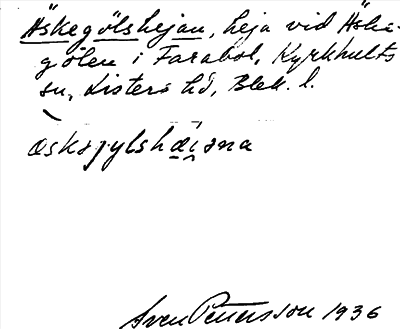 Äskegölshejan, heja vid Äske-
gölen i Farabol, Kyrkhults
sn, Listers hd, Blek. l.
æskəɟylshæi̯əna
Sven Petersson 1936